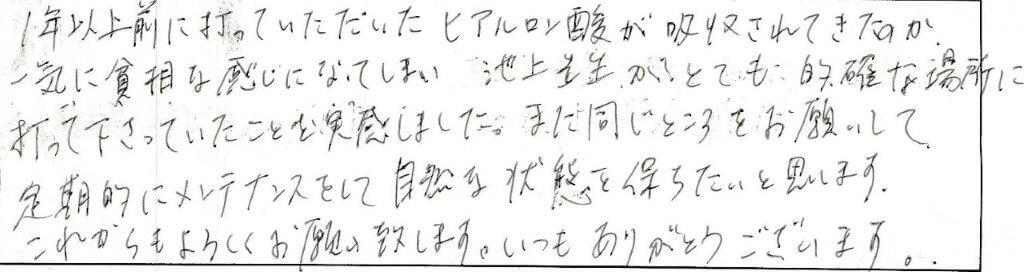 1年以上前に打っていただいたヒアルロン酸が吸収されてきたのか、
一気に貧相な感じになってしまい 池上先生が、とても的確な場所に
打って下さっていたことを実感しました。また同じところをお願いして、
定期的にメンテナンスをして自然な状態を保ちたいと思います。
これからもよろしくお願い致します。いつもありがとうございます。